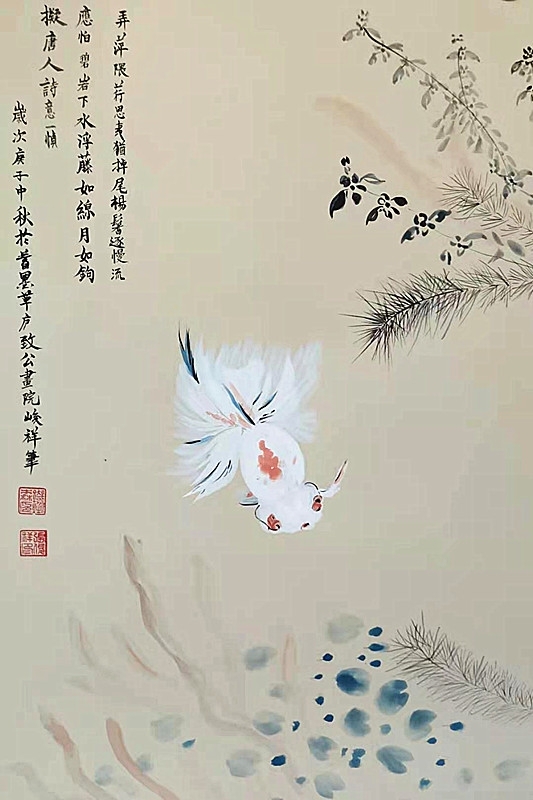 弄萍隈荇思夷猶掉尾楊鬐逐慢流
應怕碧岩下水浮藤如線月如鉤
擬唐人詩意一幀
歲次庚子中秋扵墨草戶致公畫院峻祥筆